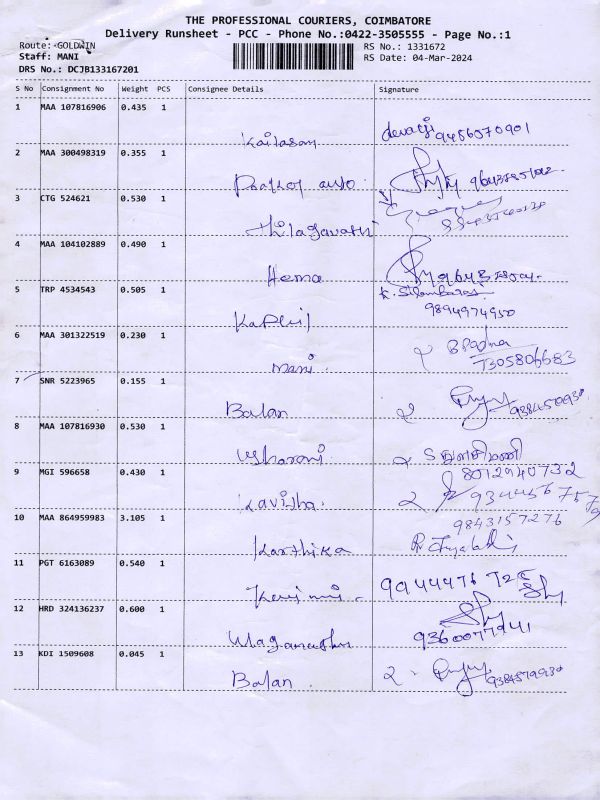 THE PROFESSIONAL COURIERS, COIMBATORE
Delivery Runsheet - PCC - Phone No.:0422-3505555 - Page No.:1
Route: GOLDWIN
RS No.: 1331672
Staff: MANI
RS Date: 04-Mar-2024
DRS No.: DCJB133167201
S No Consignment No Weight PCS Consignee Details Signature
1 MAA 107816906 0.435 1
Kailasam
2 MAA 300498319 0.355 1
auto
3 CTG 524621 0.530 1
Thilagavathi
4 MAA 104102889 0.490 1
Hema
5 TRP 4534543 0.505 1
9894974950
6 MAA 301322519 0.230 1
Mani B Padma
7305806683
7 SNR 5223965 0.155 1
Balan
8 MAA 107816930 0.530 1
Usharani S துளசிமணி
8012940732
9 MGI 596658 0.430 1
Kavitha
9843157276
10 MAA 864959983 3.105 1
Karthika
11 PGT 6163089 0.540 1
12 HRD 324136237 0.600 1
13 KDI 1509608 0.045 1
Balan